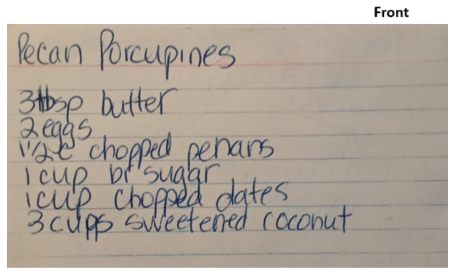 Front
Pecan Porcupines
3 tbsp butter
2 eggs
1 1/2 c chopped penans
1 cup br sugar
1 cup chopped dates
3 cups sweetened coconut